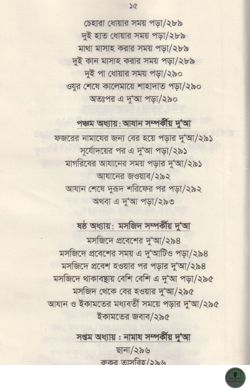 ১৫
চেহারা ধোয়ার সময় পড়া/২৮৯
দুই হাত ধোয়ার সময় পড়া/২৮৯
মাথা মাসাহ করার সময় পড়া/২৮৯
দুই কান মাসাহ করার সময় পড়া/২৮৯
দুই পা ধোয়ার সময় পড়া/২৯০
ওযুর শেষে কালেমায়ে শাহাদাত পড়া/২৯০
অতঃপর এ দু'আ পড়া/২৯০
পঞ্চম অধ্যায় : আযান সম্পর্কীয় দু'আ
ফজরের নামাযের জন্য বের হয়ে পড়ার দু'আ/২৯১
সূর্যোদয়ের পর এ দু'আ পড়া/২৯১
মাগরিবের আযানের সময় পড়ার দু'আ/২৯১
আযানের জওয়াব/২৯২
আযান শেষে দুরূদ শরিফের পর পড়া/২৯২
অথবা এ দু'আ পড়া/২৯৩
ষষ্ঠ অধ্যায় : মসজিদ সম্পর্কীয় দু'আ
মসজিদে প্রবেশের দু'আ/২৯৪
মসজিদে প্রবেশের সময় এ দু'আটিও পড়া/২৯৪
মসজিদে প্রবেশ হওয়ার পর পড়ার দু'আ/২৯৪
মসজিদে থাকাবস্থায় বেশি বেশি এ দু'আ পড়া/২৯৫
মসজিদ থেকে বের হওয়ার দু'আ/২৯৫
আযান ও ইকামতের মধ্যবর্তী সময়ে পড়ার দু'আ/২৯৫
ইকামতের জবাব/২৯৫
সপ্তম অধ্যায় : নামায সম্পর্কীয় দু'আ
ছানা/২৯৬
রুকুর তাসবিহ/২৯৬